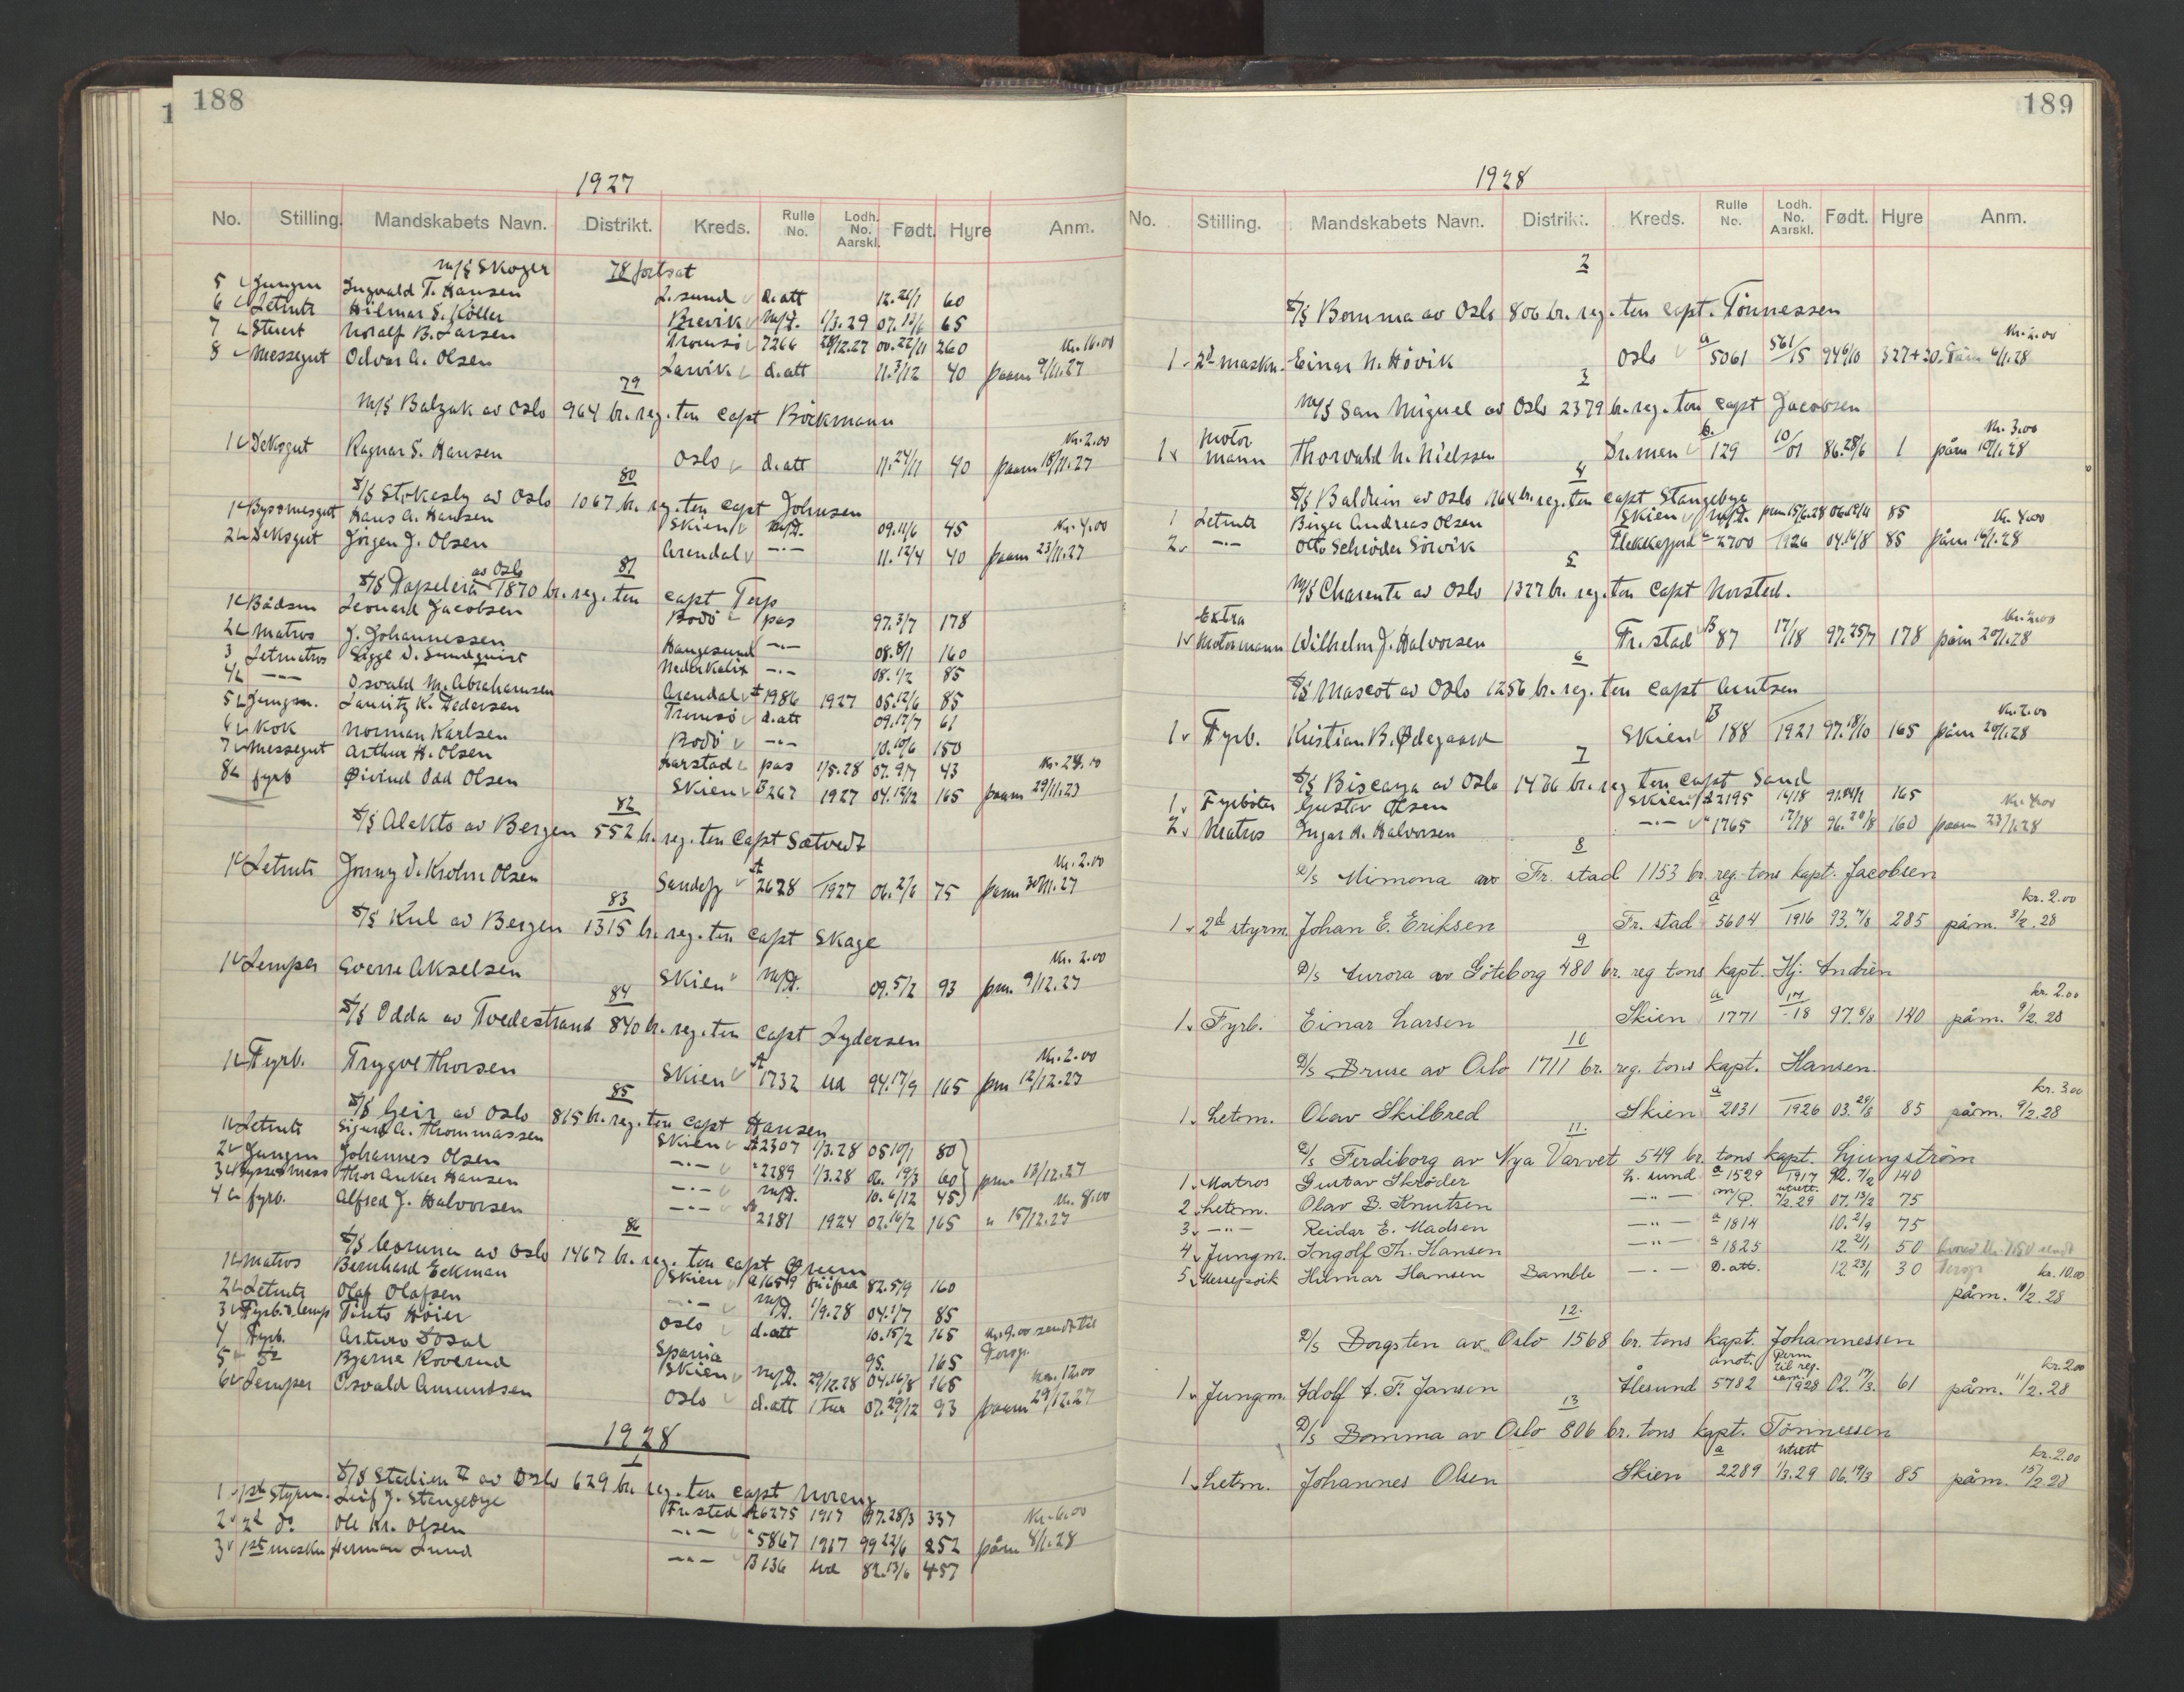 188
1927
No. Stilling. Mandskabets Navn. Distrikt. Kreds. Rulle No. Lodh. No. Aarskl. Født. Hyre Anm.
M/S Skoger 78 fortsat
5 Jungm Ingvald T. Hansen L.sund d.att 12.21/1 60
6 Letmtr Hilmar S. Køller Brevik M/P. 1/3.29 07.12/6 65
7 Stuert Noralf B. Larsen Tromsö 7266 28/12.27 00.22/11 260 Kr. 16.00
8 Messegut Odvar A. Olsen Larvik d.att 11.3/12 40 paam 9/11.27
79
M/S Balzak av Oslo 964 br. reg. ton Capt Böckmann
1 Deksgut Ragnar S. Hansen Oslo d.att 11.24/11 40 Kr. 2.00 paam 18/11.27
80
S/S Stokesby av Oslo 1067 br. reg. ton Capt Johnsen
1 Byssmesgut Hans A. Hansen Skien M/P. 09.11/6 45 Kr. 4.00
2 Deksgut Jörgen J. Olsen Arendal -"- 11.12/4 40 paam 23/11.27
81
S/S Papeleia av Oslo 1870 br. reg. ton Capt Terp
1 Bådsm Leonard Jacobsen Bodö pas 97.3/7 178
2 Matros J. Johannessen Haugesund -"- 08.8/1 160
3 Letmatros Sigge V. Sundquist Nederkalix -"- 08.1/2 85
4 -"- Osvald M. Abrahamsen Arendal A 1986 1927 05.12/6 85
5 Jungm. Lauritz K. Pedersen Tromsö d.att 09.17/7 61
6 Kok Norman Karlsen Bodö -"- 10.10/6 150
7 Messegut Arthur H. Olsen Harstad pas 1/5.28 07.9/7 43 Kr. 24.00
8 fyrb Øivind Odd Olsen Skien B 267 1927 04.12/12 165 paam 29/11.27
82
S/S Alekto av Bergen 552 br. reg. ton Capt Sætvedt
1 Letmtr Jonny V. Krohn Olsen Sandefj A 2628 1927 06.2/6 75 Kr. 2.00 paam 30/11.27
83
S/S Kul av Bergen 1315 br. reg. ton Capt Skage
1 Lemper Sverre Akselsen Skien M/P. 09.5/2 93 Kr. 2.00 pm 9/12.27
84
S/S Odda av Tvedestrand 840 br. reg. ton Capt Lydersen
1 Fyrb. Trygve Thorsen Skien A 1732 ua 94.17/9 165 Kr. 2.00 pm 12/12.27
85
S/S Geir av Oslo 815 br. reg. ton Capt Hansen
1 Letmtr Sigurd A. Thommassen Skien A 2307 1/3.28 05 10/1 80
2 Jungm Johannes Olsen -"- " 2289 1/3.28 06. 19/3 60 pm 13/12.27
3 Bysse & mess Thor Anker Hansen -"- M/P. 10.6/12 45
4 fyrb. Alfred J. Halvorsen -"- A 2181 1924 02.16/2 165 Kr. 8.00 " 15/12.27
86
S/S Coruna av Oslo 1467 br. reg. ton Capt Gruem
1 Matros Bernhard Eckman Skien a 1659 82.5/9 160
2 Letmtr Olaf Olafsen -"- M/P. 1/9.28 04.1/7 85
3 Fyrb. & lemp Tinto Höier Oslo d.att 10.15/2 165 Kr. 9.00 sendt til
4 Fyrb. Arturo Dosal Spania 95. 165
5 Do Bjarne Roverud Skien M/P. 29/12.28 04.16/8 165 Kr. 12.00
6 Lemper Osvald Amundsen Oslo d.att 1 tur 07.29/12 93 paam 29/12.27
1928
1
S/S Stadion II av Oslo 629 br. reg. ton Capt Noreng
1 1ste Styrm. Leif J. Stangebye Fr.sted A 6275 1917 97.28/3 337
2 2d do Ole Kr. Olsen -"- " 5867 1917 99 22/6 252 Kr. 6.00
3 1ste maskn Herman Lund -"- B 136 ua 82.13/6 457 påm 8/1.28
189
1928
No. Stilling. Mandskabets Navn. Distrikt. Kreds. Rulle No. Lodh. No. Aarskl. Født. Hyre Anm.
2
S/S Bomma av Oslo 806 br. reg. ton Capt. Tönnessen
1 2d maskn. Einar N. Hövik Oslo a 5061 561/15 94 6/10 327+30. Kr. 2.00 Påm 6/1.28
3
M/S San Miguel av Oslo 2379 br. reg. ton Capt Jacobsen
1 Motormann Thorvald N. Nielssen Dr.men b. 129 10/01 86.28/6 1 Kr. 3.00 påm 10/1.28
4
S/S Balduin av Oslo 1164 br. reg. ton Capt Stangebye
1 Letmtr Birger Andreas Olsen Skien M/P. perm 15/6.28 06.19/11 85 Kr. 4.00
2 -"- Otto Schröder Sörvik Flekkefjord a 2700 1926 04.16/8 85 påm 16/1.28
5
M/S Charente av Oslo 1327 br. reg. ton Capt Norsted.
1 Extra Motormann Wilhelm J. Halvorsen Fr.stad B 87 17/18 97.25/7 178 Kr. 2.00 påm 20/1.28
6
S/S Mascot av Oslo 1256 br. reg. ton Capt Arntsen
1 Fyrb. Kristian B. Ødegaard Skien B 188 1921 97.18/10 165 Kr. 2.00 påm 20/1.28
7
S/S Biscaya av Oslo 1476 br. reg. ton Capt Sand
1 Fyrböter Gustav Olsen Skien A 2195 14/18 165 Kr. 4.00
2 Matros Ingar H. Halvorsen -"- " 1765 17/18 96.20/8 160 paam 23/1.28
8
D/S Mimona av Fr. stad 1153 br. reg. tons kapt. Jacobsen
1 2d styrm. Johan E. Eriksen Fr. stad a 5604 1916 93.7/8 285 kr. 2.00 påm. 3/2.28
9
D/S Aurora av Göteborg 480 br. reg tons kapt. Hj. Andrèn
1 Fyrb. Einar Larsen Skien a 1771 17/18 97.8/8 140 kr. 2.00 påm. 9/2.28
10
D/S Bruse av Oslo 1711 br. reg. tons kapt. Hansen.
1 Letm. Olav Skilbred Skien a 2031 1926 03.29/8 85 kr. 3.00 påm. 9/2.28
11.
D/S Ferdiborg av Nya Varvet 549 br. tons kapt. Ljungström
1 Matros Gustav Skröder L. sund a 1529 1917 92.7/2 140
2 Letm. Olav B. Knutsen -"- M/P. utsett. 1/2.29 07.13/2 75
3 -"- Reidar E. Madsen -"- a 1814 10.2/9 75
4 Jungm. Ingolf Th. Hansen -"- a 1825 12.21/1 50
5 Messejoik Hilmar Hansen Bamble -"- D.att. 12 23/1 30 kr. 10.00
påm. 10/2.28
12.
D/S Borgsten av Oslo 1568 br. tons kapt. Johannessen
1 Jungm. Adolf A. F. Jansen Ålesund anot. 5782 Perm til reg. sam. 1928 02.17/3. 61 kr. 2.00 påm. 11/2.28
13
D/S Bomma av Oslo 806 br. tons kapt. Tönnessen
1 Letm. Johannes Olsen Skien a 2289 utsett 1/3.29 06.19/3 85 kr. 2.00 påm. 15/2.28